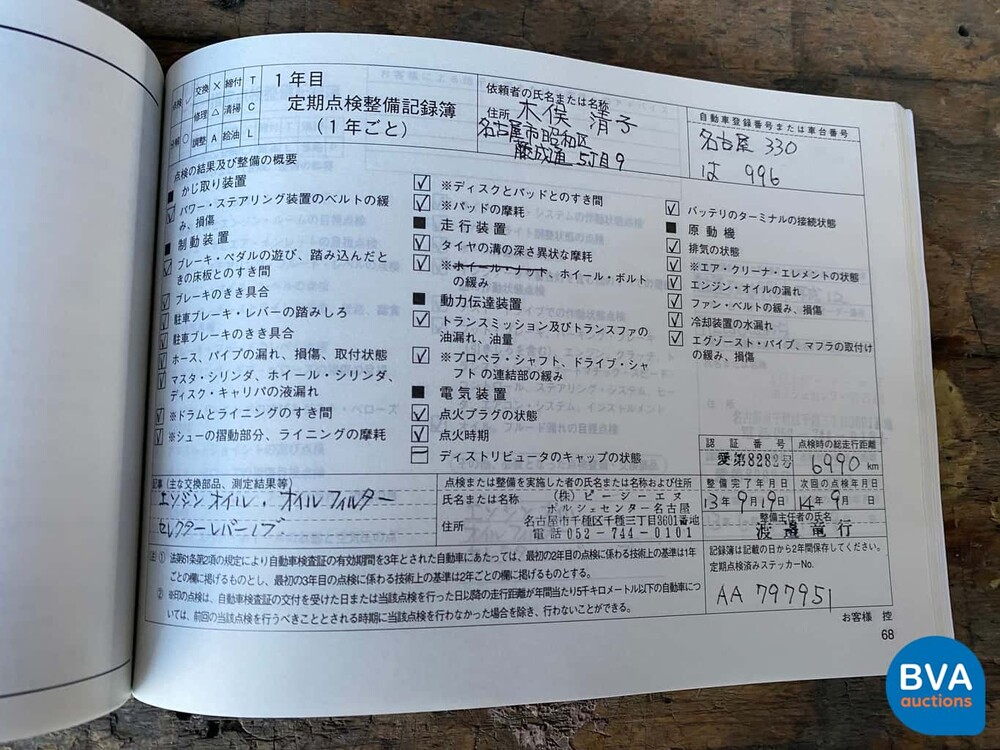 点検 ✓ 交換 × 締付 T
修理 △ 清掃 C
分解 ○ 調整 A 給油 L
1年目
定期点検整備記録簿
（1年ごと）
依頼者の氏名または名称
木俣 清子
住所 名古屋市昭和区
藤成通 5丁目9
自動車登録番号または車台番号
名古屋 330
は 996
点検の結果及び整備の概要
■ かじ取り装置
✓ パワー・ステアリング装置のベルトの緩
み、損傷
■ 制動装置
✓ ブレーキ・ペダルの遊び、踏み込んだと
きの床板とのすき間
✓ ブレーキのきき具合
✓ 駐車ブレーキ・レバーの踏みしろ
✓ 駐車ブレーキのきき具合
✓ ホース、パイプの漏れ、損傷、取付状態
✓ マスタ・シリンダ、ホイール・シリンダ、
ディスク・キャリパの液漏れ
✓ ※ドラムとライニングのすき間
✓ ※シューの摺動部分、ライニングの摩耗
✓ ※ディスクとパッドとのすき間
✓ ※パッドの摩耗
■ 走行装置
✓ タイヤの溝の深さ異状な摩耗
✓ ※ホイール・ナット、ホイール・ボルト
の緩み
■ 動力伝達装置
✓ トランスミッション及びトランスファの
油漏れ、油量
✓ ※プロペラ・シャフト、ドライブ・シャ
フトの連結部の緩み
■ 電気装置
✓ 点火プラグの状態
✓ 点火時期
ディストリビュータのキャップの状態
✓ バッテリのターミナルの接続状態
■ 原動機
✓ 排気の状態
✓ ※エア・クリーナ・エレメントの状態
✓ エンジン・オイルの漏れ
✓ ファン・ベルトの緩み、損傷
✓ 冷却装置の水漏れ
✓ エグゾースト・パイプ、マフラの取付け
の緩み、損傷
認証番号 点検時の総走行距離
愛第8282号 6990 km
記事（主な交換部品、測定結果等）
エンジンオイル・オイルフィルター
セレクターレバーノブ
点検または整備を実施した者の氏名または名称および住所
氏名または名称 （株）ピーシーエヌ
ポルシェセンター名古屋
住所 名古屋市千種区千種三丁目3601番地
電話052-744-0101
整備完了年月日 次回の点検年月日
13年9月19日 14年9月 日
整備主任者の氏名
渡邉竜行
注）① 法第61条第2項の規定により自動車検査証の有効期間を3年とされた自動車にあたっては、最初の2年目の点検に係わる技術上の基準は1年
ごとの欄に掲げるものとし、最初の3年目の点検に係わる技術上の基準は2年ごとの欄に掲げるものとする。
② ※印の点検は、自動車検査証の交付を受けた日または当該点検を行った日以降の走行距離が年間当たり5千キロメートル以下の自動車につ
いては、前回の当該点検を行うべきこととされる時期に当該点検を行わなかった場合を除き、行わないことができる。
記録簿は記載の日から2年間保存してください。
定期点検済みステッカーNo.
AA 797951
お客様 控
68
BVA
auctions